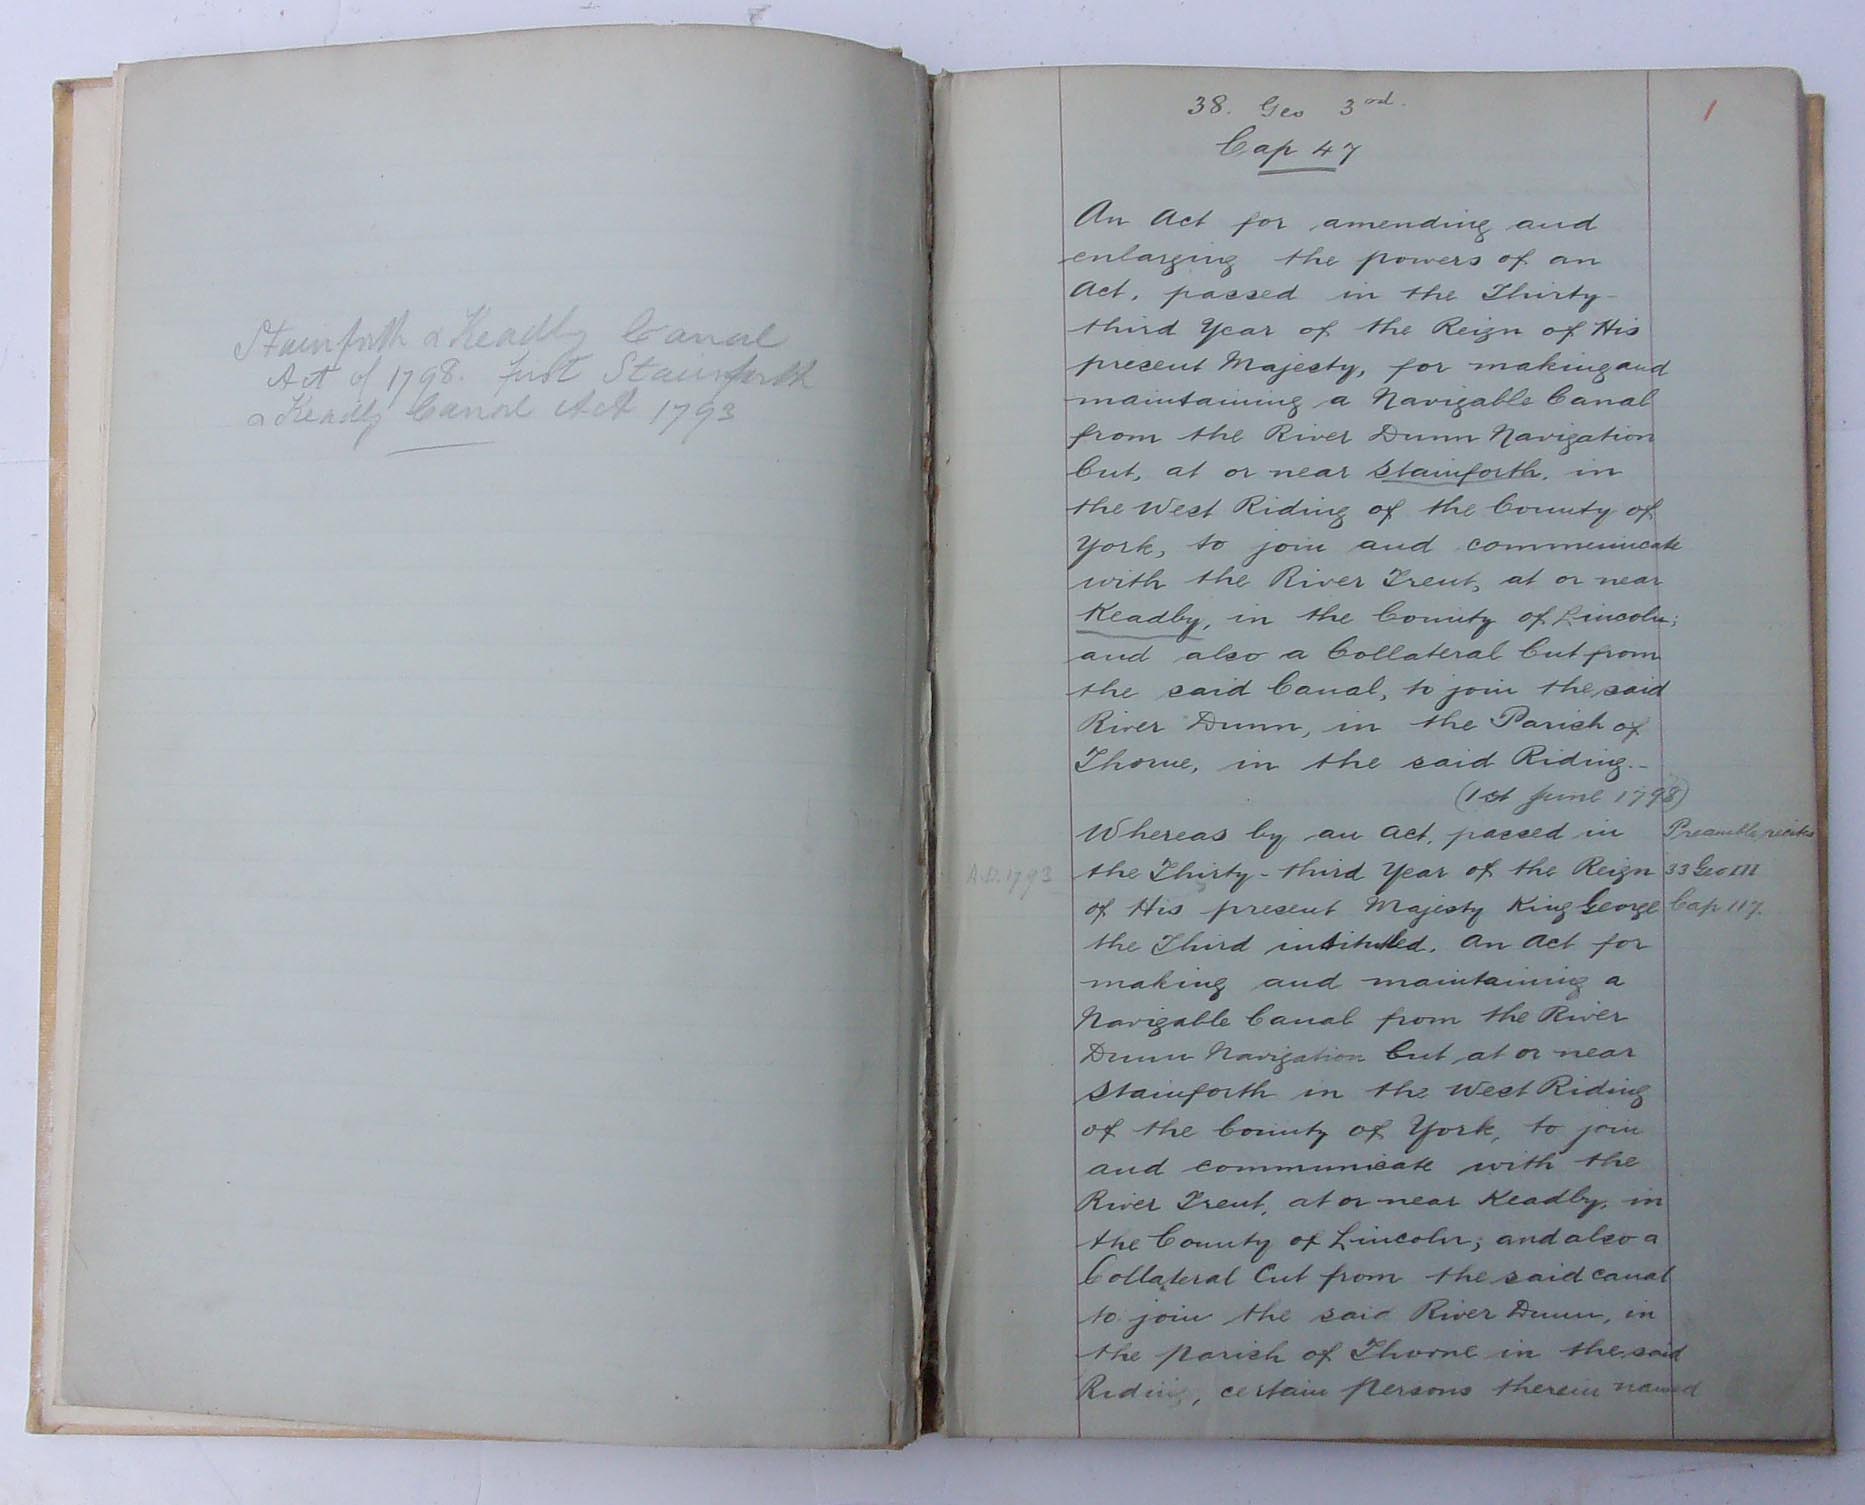 Stainforth & Keadby Canal
Act of 1798. First Stainforth
& Keadby Canal Act 1793
1
38. Geo 3rd.
Cap 47
An Act for amending and
enlarging the powers of an
Act, passed in the Thirty-
third Year of the Reign of His
present Majesty, for making and
maintaining a Navigable Canal
from the River Dunn Navigation
Cut, at or near Stainforth, in
the West Riding of the County of
York, to join and communicate
with the River Trent, at or near
Keadby, in the County of Lincoln;
and also a Collateral Cut from
the said Canal, to join the said
River Dunn, in the Parish of
Thorne, in the said Riding.-
(1st June 1798)
Whereas by an act, passed in
the Thirty-third Year of the Reign
of His present Majesty King George
the Third intituled, An Act for
making and maintaining a
Navigable Canal from the River
Dunn Navigation Cut at or near
Stainforth in the West Riding
of the County of York, to join
and communicate with the
River Trent, at or near Keadby, in
the County of Lincoln; and also a
Collateral Cut from the said canal
to join the said River Dunn, in
the parish of Thorne in the said
Riding, certain Persons therein named
A.D. 1793
Preamble, recites
33 Geo III
Cap 117.